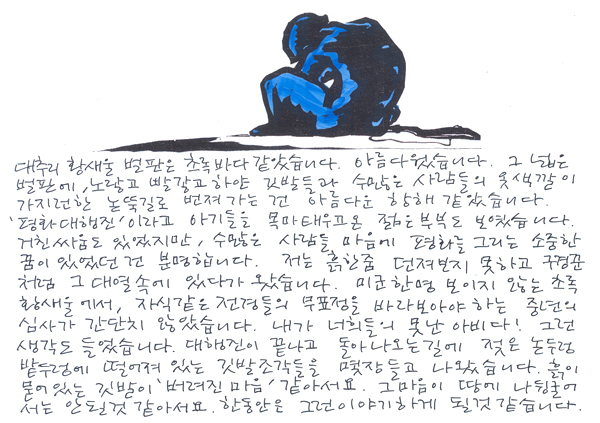 대추리 황새울 벌판은 초록바다 같았습니다. 아름다웠습니다. 그 넓은
벌판에, 노랗고 빨갛고 하얀 깃발들과 수많은 사람들의 옷색깔이
가지런한 논뚝길로 번져가는 건 아름다운 항해 같았습니다.
'평화대행진'이라고 아기들을 목마태우고 온 젊은 부부도 보였습니다.
거친 싸움도 있었지만, 수많은 사람들 마음에 평화를 그리는 소중한
꿈이 있었던 건 분명합니다. 저는 흙한줌 던져보지 못하고 구경꾼
처럼 그 대열속에 있다가 왔습니다. 미군 한명 보이지 않는 초록
황새울에서, 자식같은 전경들의 무표정을 바라보아야 하는 중년의
심사가 간단치 않았습니다. 내가 너희들의 못난 아비다! 그런
생각도 들었습니다. 대행진이 끝나고 돌아나오는 길에 젖은 논두렁
밭두렁에 떨어져 있는 깃발조각들을 몇장 들고 나왔습니다. 흙이
묻어있는 깃발이 '버려진 마음' 같아서요. 그 마음이 땅에 나뒹굴어
서는 안될것 같아서요. 한동안은 그런 이야기하게 될것 같습니다.